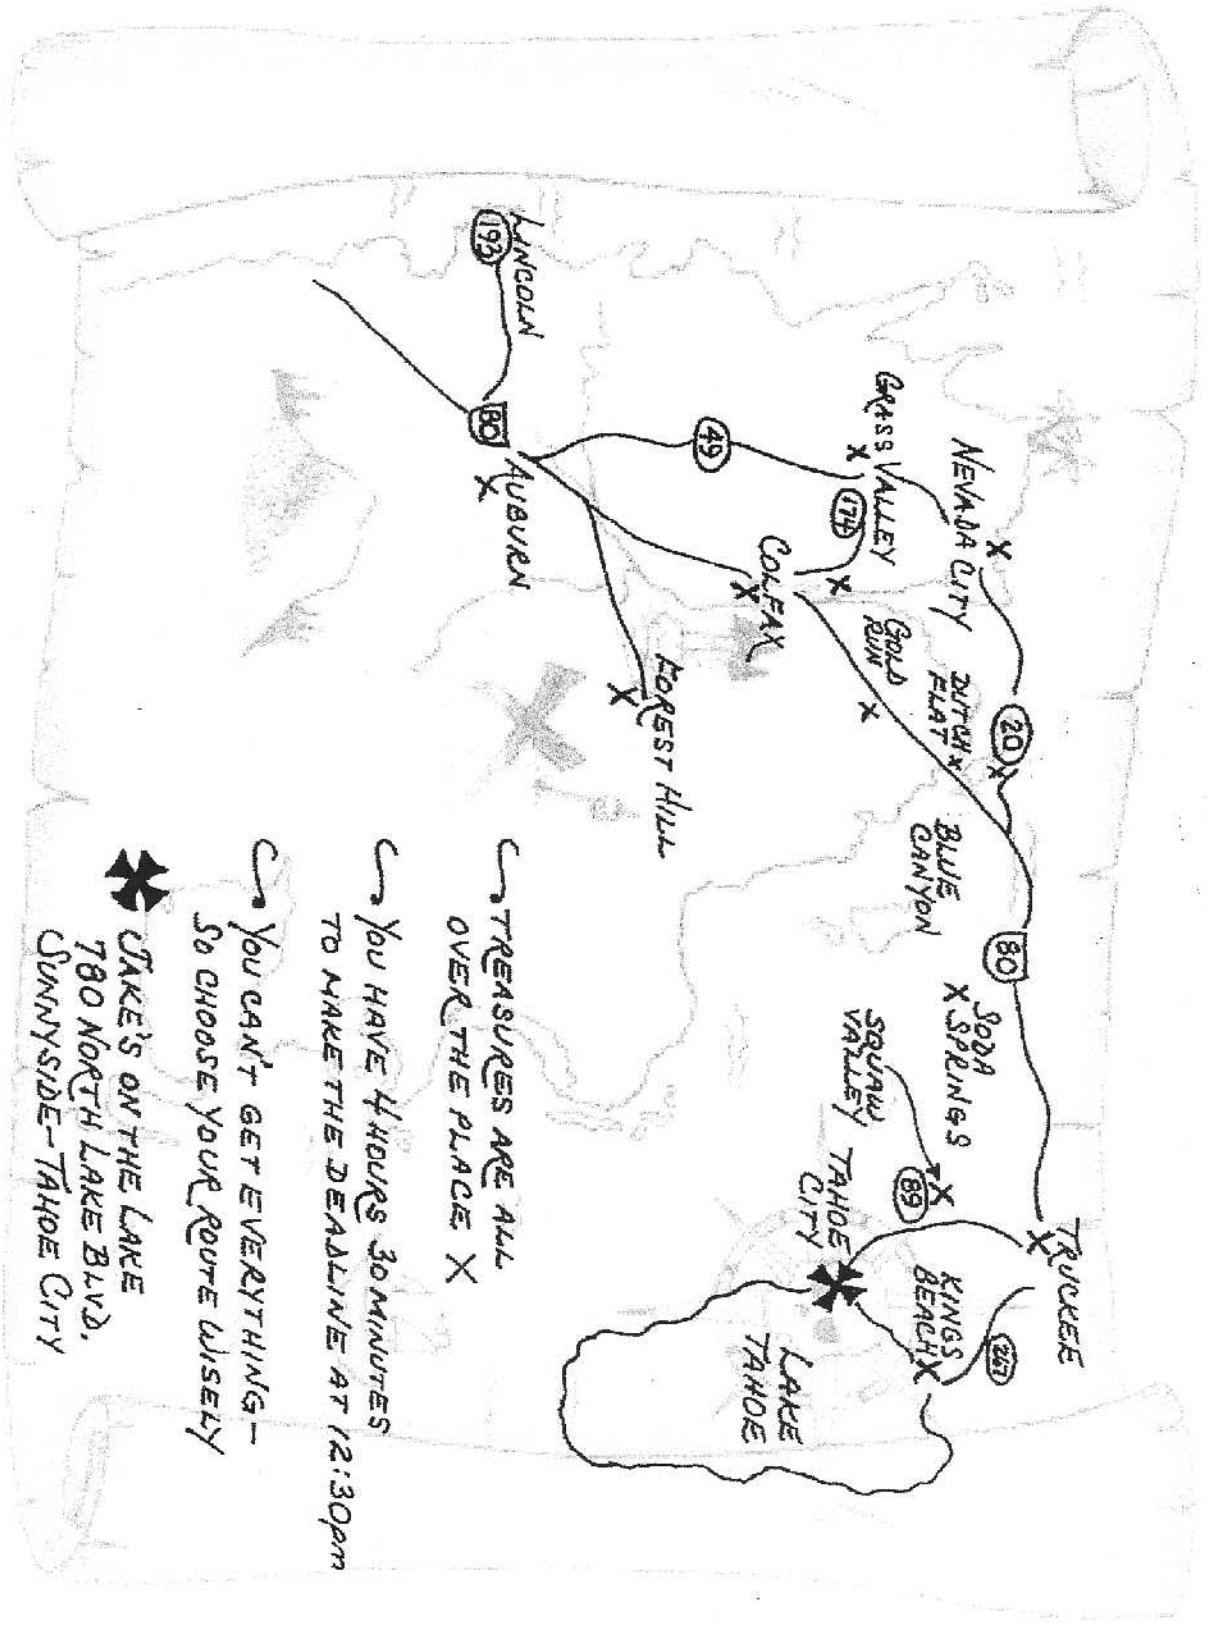 LINCOLN
193
80
AUBURN
49
GRASS VALLEY
174
NEVADA CITY
COLFAX
GOLD
RUN
DUTCH
FLAT
20
FOREST HILL
BLUE
CANYON
80
SODA
SPRINGS
SQUAW
VALLEY
89
TAHOE
CITY
TRUCKEE
267
KINGS
BEACH
LAKE
TAHOE
TREASURES ARE ALL
OVER THE PLACE X
YOU HAVE 4 HOURS 30 MINUTES
TO MAKE THE DEADLINE AT 12:30pm
YOU CAN'T GET EVERYTHING-
SO CHOOSE YOUR ROUTE WISELY
JAKE'S ON THE LAKE
780 NORTH LAKE BLVD.
SUNNYSIDE-TAHOE CITY